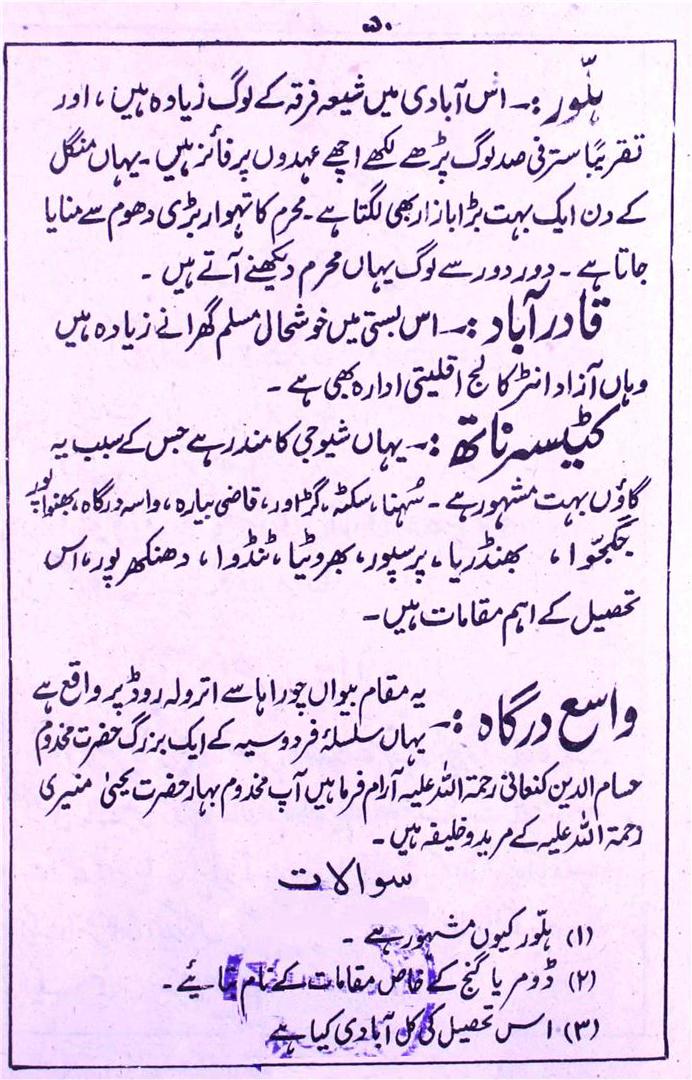 ۷۰
ہلّور :- اس آبادی میں شیعہ فرقہ کے لوگ زیادہ ہیں، اور
تقریبًا ستر فی صد لوگ پڑھے لکھے اچھے عہدوں پر فائز ہیں۔ یہاں منگل
کے دن ایک بہت بڑا بازار بھی لگتا ہے۔ محرم کا تہوار بڑی دھوم سے منایا
جاتا ہے۔ دور دور سے لوگ یہاں محرم دیکھنے آتے ہیں ۔
قادر آباد :- اس بستی میں خوشحال مسلم گھرانے زیادہ ہیں
وہاں آزاد انٹر کالج اقلیتی ادارہ بھی ہے ۔
کٹیسر ناتھ :- یہاں شیوجی کا مندر ہے جس کے سبب یہ
گاؤں بہت مشہور ہے ۔ سُہنا، سکٹہ، گڑاور، قاضی بیارہ، واسہ درگاہ، بھنواپور
جگجوّا، بھنڈریا، پرسپور، بھروٹیا، ٹنڈوا، دھنکھر پور، اس
تحصیل کے اہم مقامات ہیں۔
واسع درگاہ :- یہ مقام بیواں چوراہا سے اترولہ روڈ پر واقع ہے
یہاں سلسلۂ فردوسیہ کے ایک بزرگ حضرت مخدوم
حسام الدین کنعانی رحمۃ اللہ علیہ آرام فرما ہیں آپ مخدوم بہار حضرت یحیٰی منیری
رحمۃ اللہ علیہ کے مرید و خلیفہ ہیں ۔
سوالات
(۱) ہلّور کیوں مشہور ہے ۔
(۲) ڈومریا گنج کے خاص مقامات کے نام بتائیے ۔
(۳) اس تحصیل کی کل آبادی کیا ہے